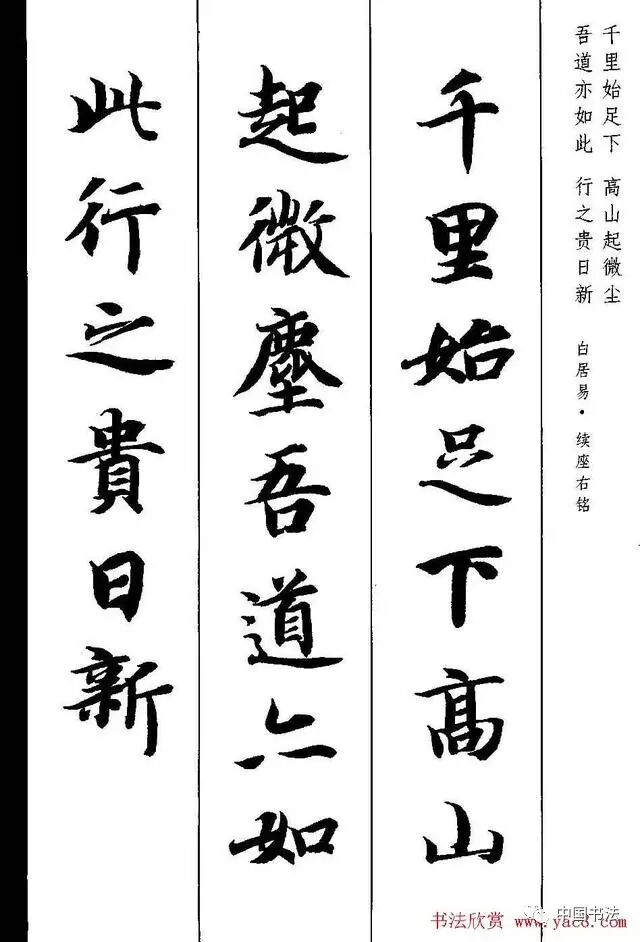 千里始足下 高山起微尘
吾道亦如此 行之贵日新
白居易·续座右铭
千里始足下高山
起微塵吾道亦如
此行之貴日新
书法欣赏 www.yac8.com
中国书法